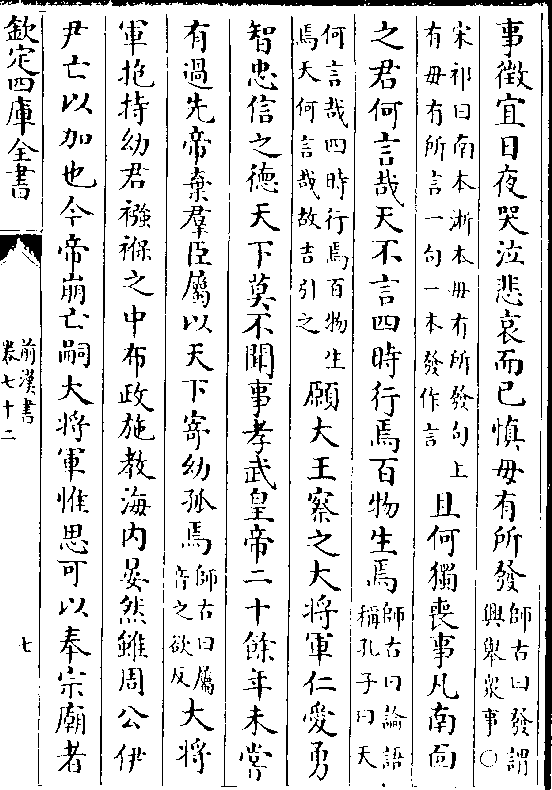 事徵宜日夜哭泣悲哀而已慎毋有所發師古曰發謂
興舉衆事○
宋祁曰南本淅本毋有所發句上
有毋有所言一句一本發作言
且何獨喪事凡南面
之君何言哉天不言四時行焉百物生焉師古曰論語
稱孔子曰天
何言哉四時行焉百物生
焉天何言哉故吉引之
願大王察之大將軍仁愛勇
智忠信之德天下莫不聞事孝武皇帝二十餘年未嘗
有過先帝棄羣臣屬以天下寄幼孤焉師古曰屬
音之欲反
大將
軍抱持幼君襁褓之中布政施教海内晏然雖周公伊
尹亡以加也今帝崩亡嗣大將軍惟思可以奉宗廟者
欽定四庫全書
前漢書
卷七十二
七